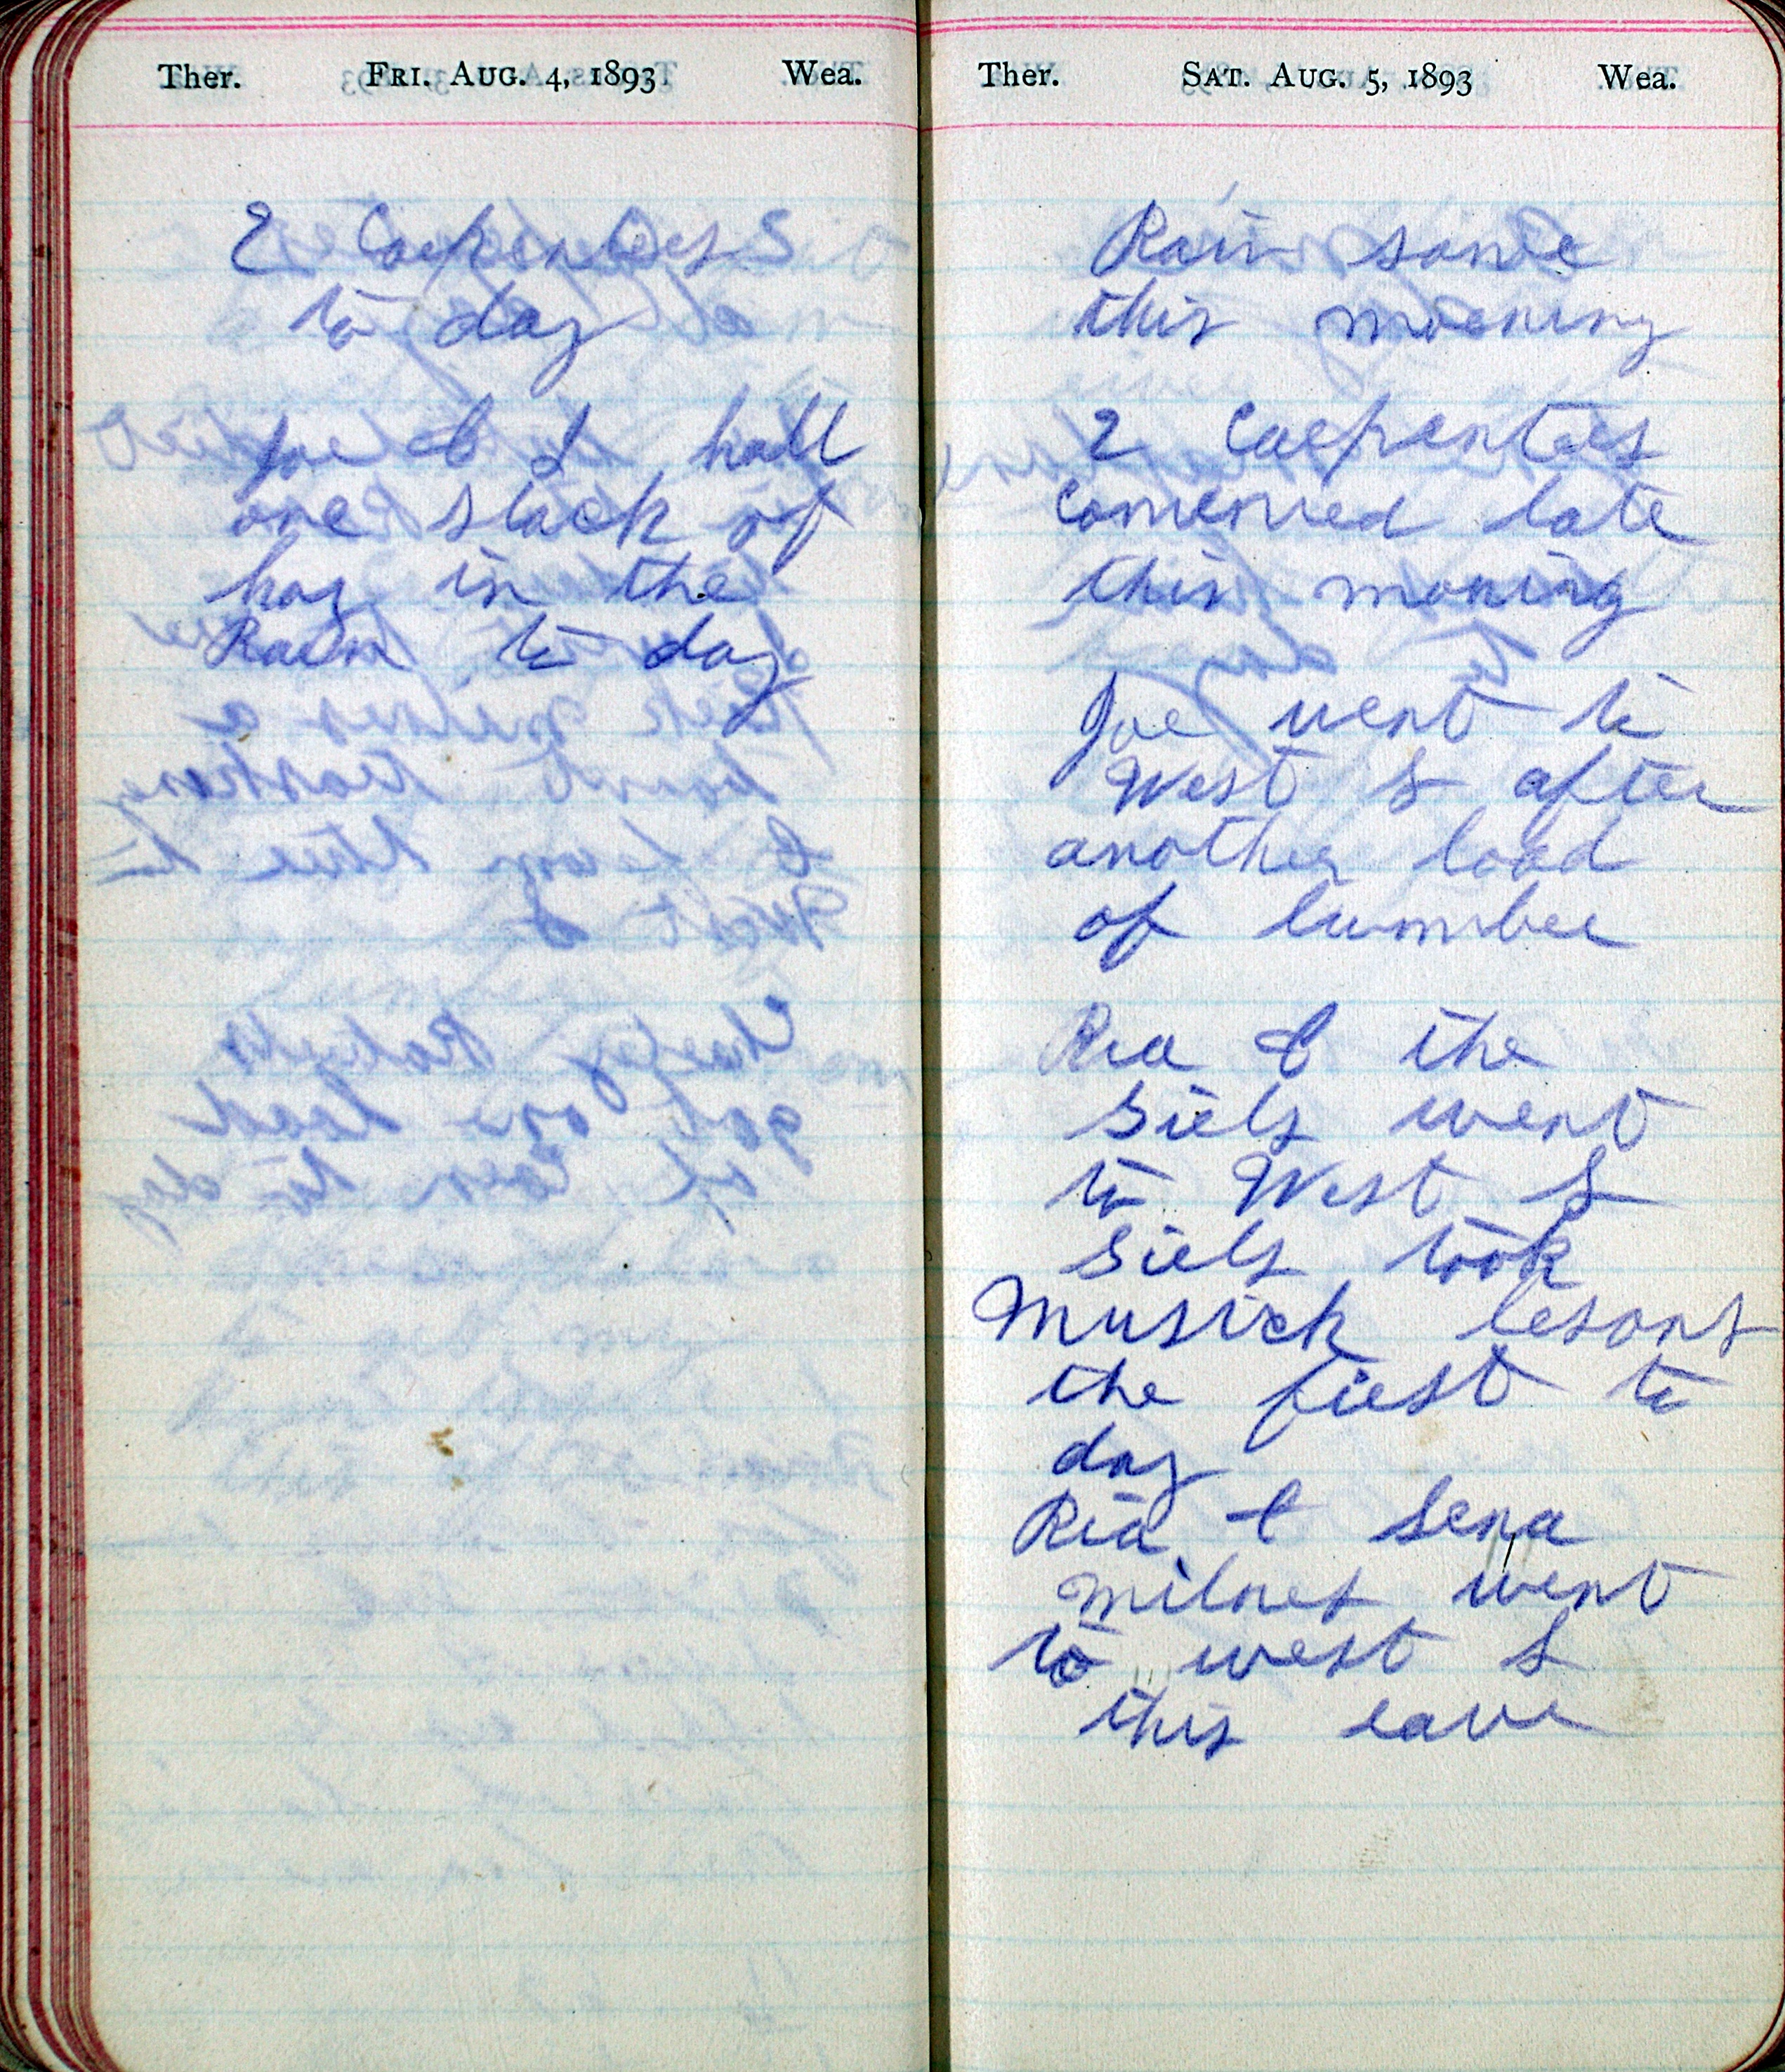 Ther. FRI. AUG. 4, 1893 Wea.
2 Carpenters
to day
Joe & I hall
one stack of
hay in the
Rain to day
Ther. SAT. AUG. 5, 1893 Wea.
Rain some
this morning
2 Carpenters
late
this moning
Joe went to
West S after
another load
of lumber
Ria & the
Girls went
to West S
Girls took
Musick lesons
the first to
day
Ria & Sena
milnes went
to west S
this eave